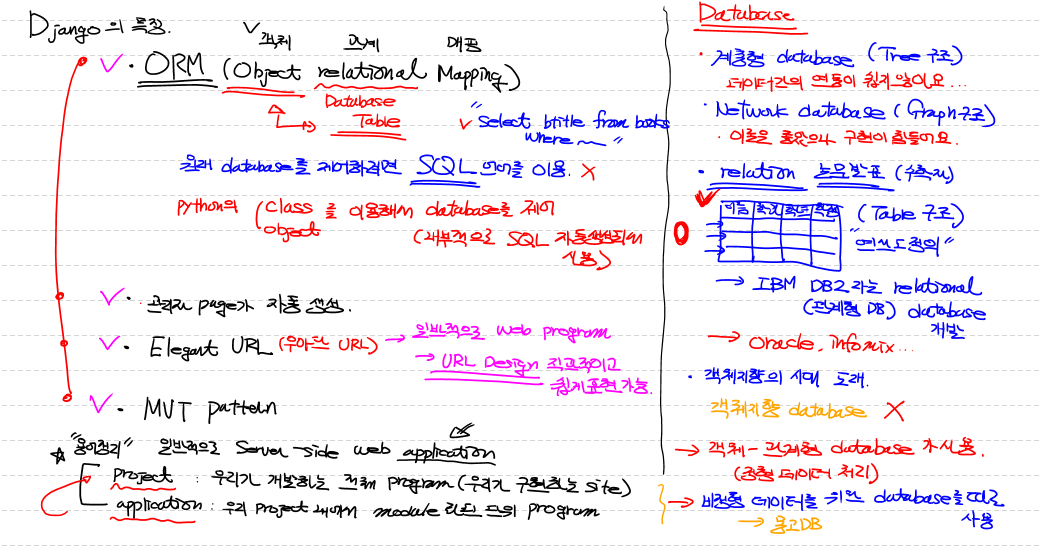 Django의 특징.
객체 관계 매핑
· ORM (Object relational Mapping)
Database
Table
"Select btitle from books
where ~~ "
원래 database를 제어하려면 SQL 언어를 이용. X
python의 (class를 이용해서 database를 제어
object
(내부적으로 SQL 자동생성되어서
사용)
· 관리자 page가 자동 생성.
· Elegant URL (우아한 URL) → 일반적으로 web program
→ URL Design 직관적이고
쉽게 표현 가능.
· MVT pattern
☆ "용어정리" 일반적으로 Server-side web application
project : 우리가 개발하는 전체 program (우리가 구현하는 site)
application : 우리 project 내에서 module 단위 program
Database
· 계층형 database (Tree 구조)
데이터간의 연동이 쉽지않아요...
· Network database (Graph구조)
· 이론은 좋았으나 구현이 힘들어요.
· relation 논문발표 (수학자)
이름 학과 학년 학점
(Table 구조)
→ IBM DB2라는 relational
(관계형 DB) database
개발
→ oracle, infomix...
· 객체지향의 시대 도래.
객체지향 database X
→ 객체-관계형 database가 사용.
(정형 데이터 처리)
→ 비정형 데이터를 위한 database를 따로
사용
→ 몽고DB